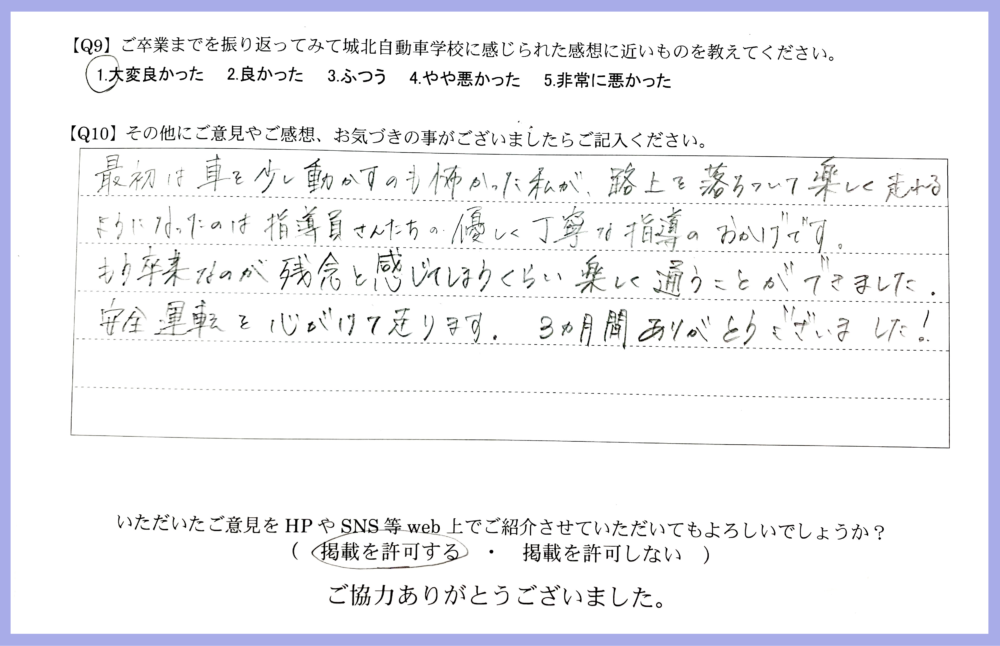 【Q9】ご卒業までを振り返ってみて城北自動車学校に感じられた感想に近いものを教えてください。
1.大変良かった 2.良かった 3.ふつう 4.やや悪かった 5.非常に悪かった
【Q10】その他にご意見やご感想、お気づきの事がございましたらご記入ください。
最初は車を少し動かすのも怖かった私が、路上を落ちついて楽しく走れる
ようになったのは指導員さんたちの優しく丁寧な指導のおかげです。
もう卒業なのが残念と感じてしまうくらい楽しく通うことができました.
安全運転を心がけて走ります. 3カ月間ありがとうございました!
いただいたご意見をHPやSNS等web上でご紹介させていただいてもよろしいでしょうか?
( 掲載を許可する ・ 掲載を許可しない )
ご協力ありがとうございました。